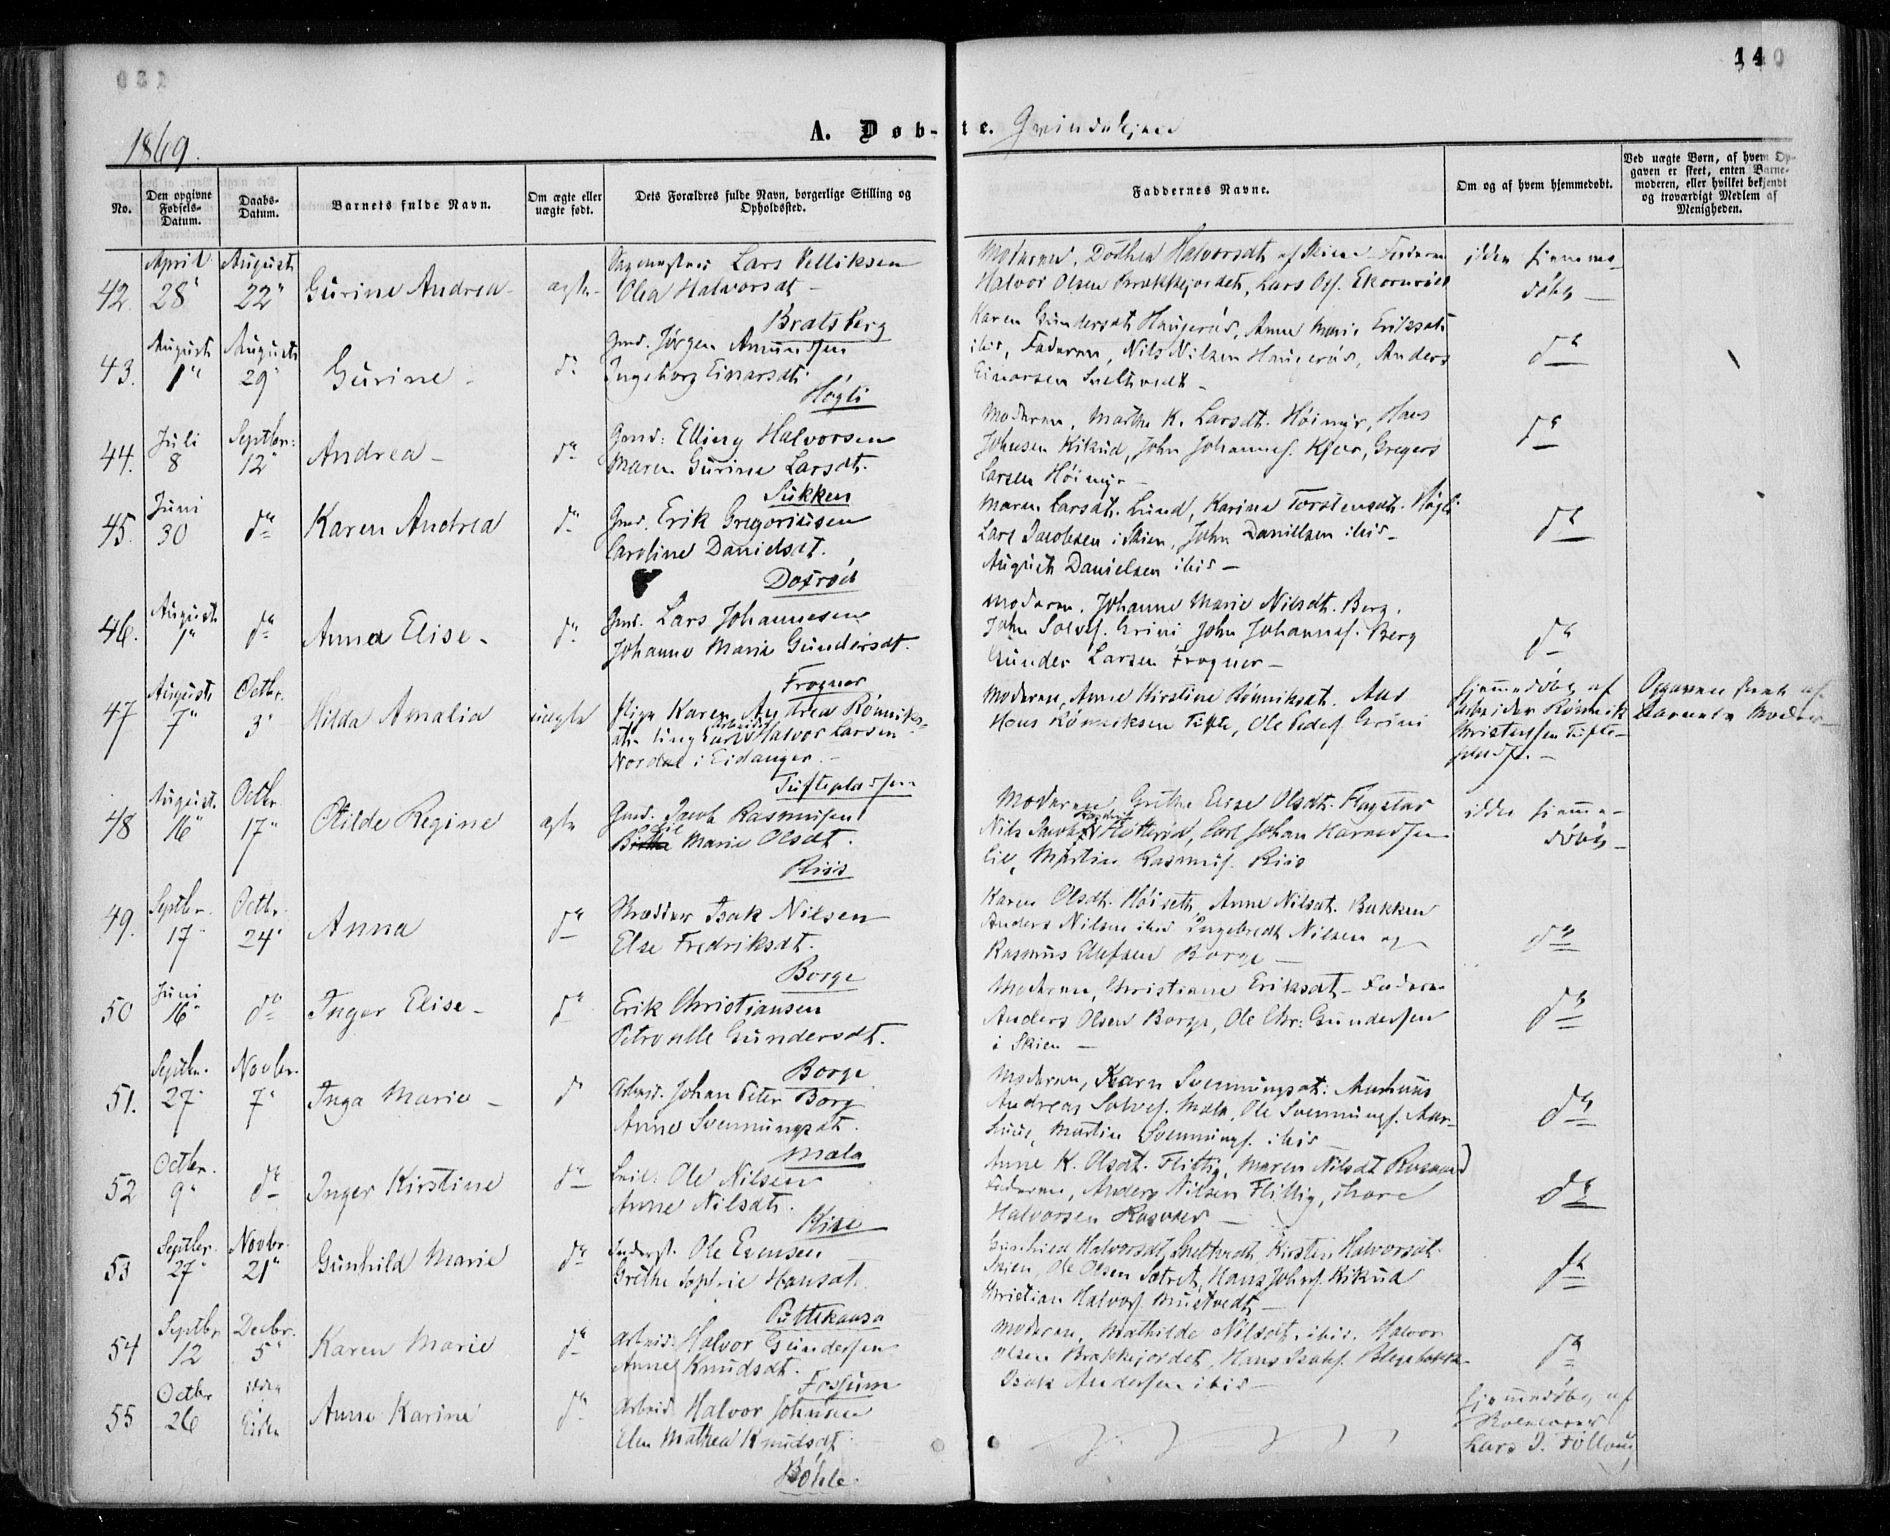 140
1869.
A. Døb-te. Qvindekjøn
No.
Den opgivne Fødsels-Datum.
Daabs-Datum.
Barnets fulde Navn.
Om ægte eller uægte født.
Dets Forældres fulde Navn, borgerlige Stilling og Opholdssted.
Faddernes Navne.
Om og af hvem hjemmedøbt.
Ved uægte Børn, af hvem Opgaven er skeet, enten Barnemoderen, eller hvilket bekjendt og troværdigt Medlem af Menigheden.
42. April 28" August 22" Gurine Andrea ægte Lars Pelliksen
Olea Halvorsdt
Bratsberg
Moderen, Dorthea Halvorsdt af Skien Faderen
Halvor Olsen Brækkejordet, Lars Ols. Ekornrød
ikke hjemmedøbt
43. August 1" August 29" Gurine d° Gmd. Jørgen Amundsen
Ingeborg Einarsdt
Høgli
Karen Gundersdt Haugerød, Anne Marie Eriksdt
ibid, Faderen, Nils Nilsen Haugerød, Anders
Einarsen Sneltvedt
d°
44. Juli 8 Septbr: 12" Andrea d° Gmd: Elling Halvorsen
Maren Gurine Larsdt.
Sükken
Moderen, Marthe K. Larsdt. Høimyr, Hans
Johnsen Kikud, John Johannes. Kjær, Gregers
Larsen Høimyr
d°
45. Juni 30 d° Karen Andrea d° Gmd. Erik Gregoriusen
Caroline Danielsdt.
Dosrød
Maren Larsdt. Lund, Karine Torstensdt. Høgli
Lars Jacobsen i Skien, John Danielsen ibid
August Danielsen ibid
d°
46. August 1" d° Anna Elise d° Gmd. Lars Johannesen
Johanne Marie Gundersdt.
Frogner
Moderen, Johanne Marie Nilsdt. Berg,
John Solves. Grini John Johannes. Berg
Gunder Larsen Frogner
d°
47 August 7" Octbr. 3" Hilda Amalia uægte Pige Karen Andrea Rønniks-
dt. Ungkarl Arbeider Halvor Larsen
Nordal i Eidanger.
Tuftepladsen
Moderen, Anne Kirstine Rønniksdt.
Hans Rønniksen Tufte, Ole Peders. Grini
hjemmedøbt af
Arbeider Rønnik
Christensen Tufte-
plads.
Opgaven skeet af
Barnets Moder
48 August. 16" Octbr. 17" Otilde Regine ægte Gmd. Jacob Rasmusen
Marie Olsdt.
Riis
Moderen, Grethe Elise Olsdt. Flagstad
Nils Jacobs. Carl Johan Karnedsen
Lie, Martin Rasmus. Riis
ikke hjemmedøbt
49. Septbr. 17" Octbr. 24" Anna d° Skrædder Isak Nilsen
Else Fredriksdt.
Borge
Karen Olsdt. Høiseth, Anne Nilsdt. Bakken
Anders Nilsen ibid Ingebredt Nilsen og
Rasmus Ellefsen Borge
d°
50 Juni 16" d° Inger Elise d° Erik Christiansen
Petronelle Gundersdt.
Borge
Moderen, Christiane Eriksdt. Faderen
Anders Olsen Borge, Ole Chr: Gundersen
i Skien
d°
51. Septbr. 27" Novbr. 7" Inga Marie d° Arbeid. Johan Peter Borg
Anne Svenningsdt.
Mæla
Moderen, Karn Svenningsdt. Aarhuus
Andreas Solves. Mæla, Ole Svennings. Aar-
huus, Martin Svennings. ibid
d°
52 Octbr. 9" d° Inger Kirstine d° Ole Nilsen
Anne Nilsdt.
Kise
Anne K. Olsdt. Flittig, Maren Nilsdt
Faderen, Anders Nilsen Flittig, Thore
Halvorsen
d°
53 Septbr. 27" Novbr. 21" Gunhild Marie d° Inderst. Ole Evensen
Grethe Sophie Hansdt.
Püttekaasa
Gunhild Halvorsdt. Sneltvedt, Kirsten Halvorsdt.
Skien, Ole Olsen Sætret, Hans Johns. Kikud
Christian Halvors. Mustvedt
d°
54 Septbr 12 Decbr. 5" Karen Marie d° Arbeid. Halvor Gundersen
Anne Knudsdt.
Fossum
Moderen, Mathilde Nilsdt. ibid. Halvor
Olsen Brækkejordet, Hans Isaks. Blegebakke
Isak Andersen ibid
d°
55 Octbr 26 Anne Karine d° Arbeid. Halvor Johnsen
Elen Mathea Knudsdt.
Bøhle
hjemmedøbt af
Lars J.